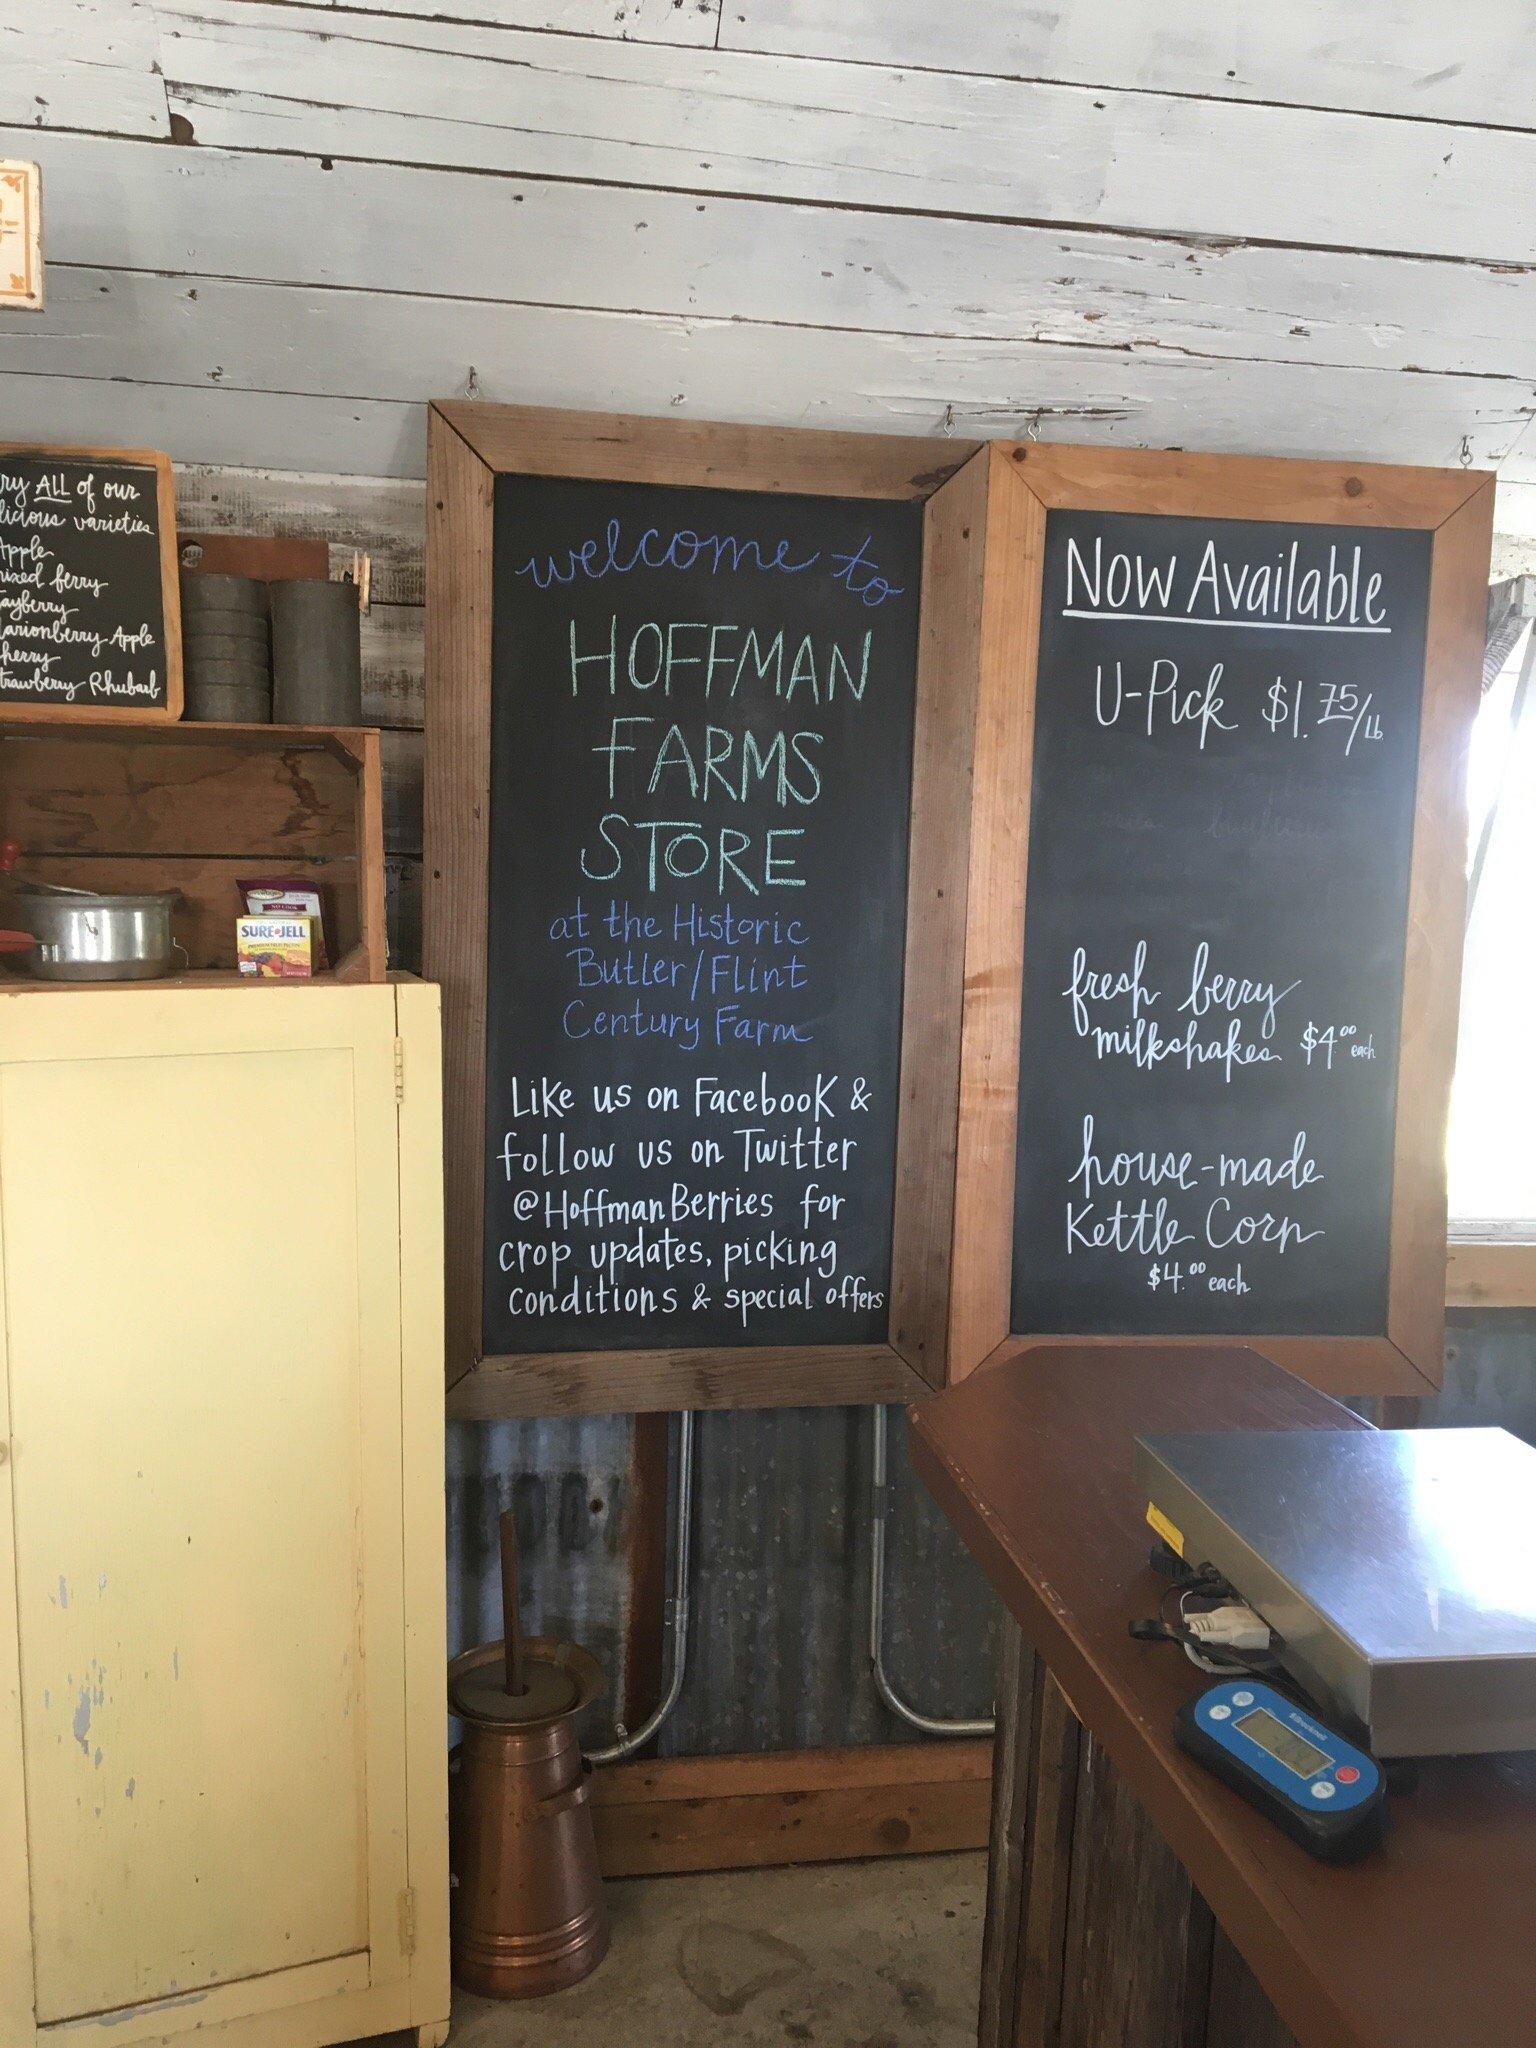 ry ALL of our
licious varieties
Apple
ixed berry
ayberry
arionberry-Apple
herry
trawberry Rhubarb
SURE-JELL
PREMIUM FRUIT PECTIN
NO COOK
welcome to
HOFFMAN
FARMS
STORE
at the Historic
Butler/Flint
Century Farm
Like us on Facebook &
follow us on Twitter
@HoffmanBerries for
crop updates, picking
conditions & special offers
Now Available
U-Pick $1.75/Lb.
fresh berry
milkshakes $4.00 each
house-made
Kettle Corn
$4.00 each